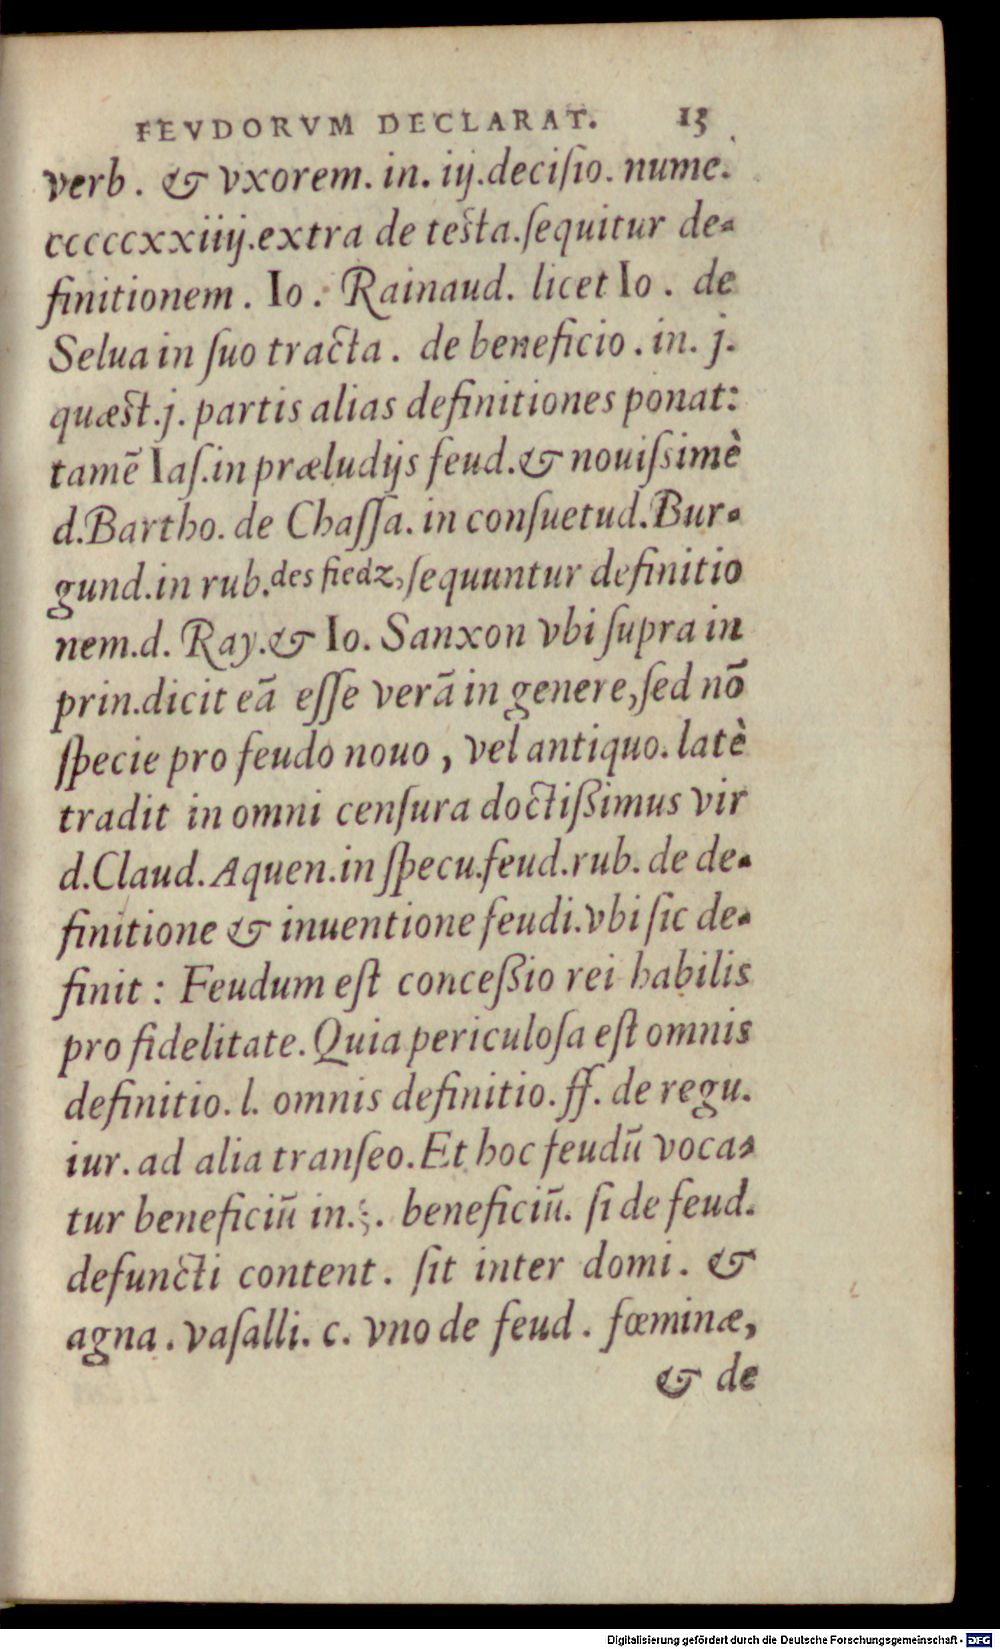 FEVDORVM DECLARAT. 15
verb. & vxorem. in. iij. deciſio. nume.
cccccxxiiij. extra de teſta. ſequitur de-
finitionem. Io. Rainaud. licet Io. de
Selua in ſuo tracta. de beneficio. in. j.
quæſt. j. partis alias definitiones ponat:
tamē Iaſ. in præludijs feud. & nouiſsimè
d. Bartho. de Chaſſa. in conſuetud. Bur-
gund. in rub. des fiedz, ſequuntur definitio
nem. d. Ray. & Io. Sanxon vbi ſupra in
prin. dicit eā eſſe verā in genere, ſed nō
ſpecie pro feudo nouo, vel antiquo. latè
tradit in omni cenſura doctiſſimus vir
d. Claud. Aquen. in ſpecu. feud. rub. de de-
finitione & inuentione feudi. vbi ſic de-
finit: Feudum eſt conceſſio rei habilis
pro fidelitate. Quia periculoſa eſt omnis
definitio. l. omnis definitio. ff. de regu.
iur. ad alia tranſeo. Et hoc feudū voca-
tur beneficiū in. §. beneficiū. ſi de feud.
defuncti content. ſit inter domi. &
agna. vaſalli. c. vno de feud. fœminæ,
& de
Digitalisierung gefördert durch die Deutsche Forschungsgemeinschaft - DFG